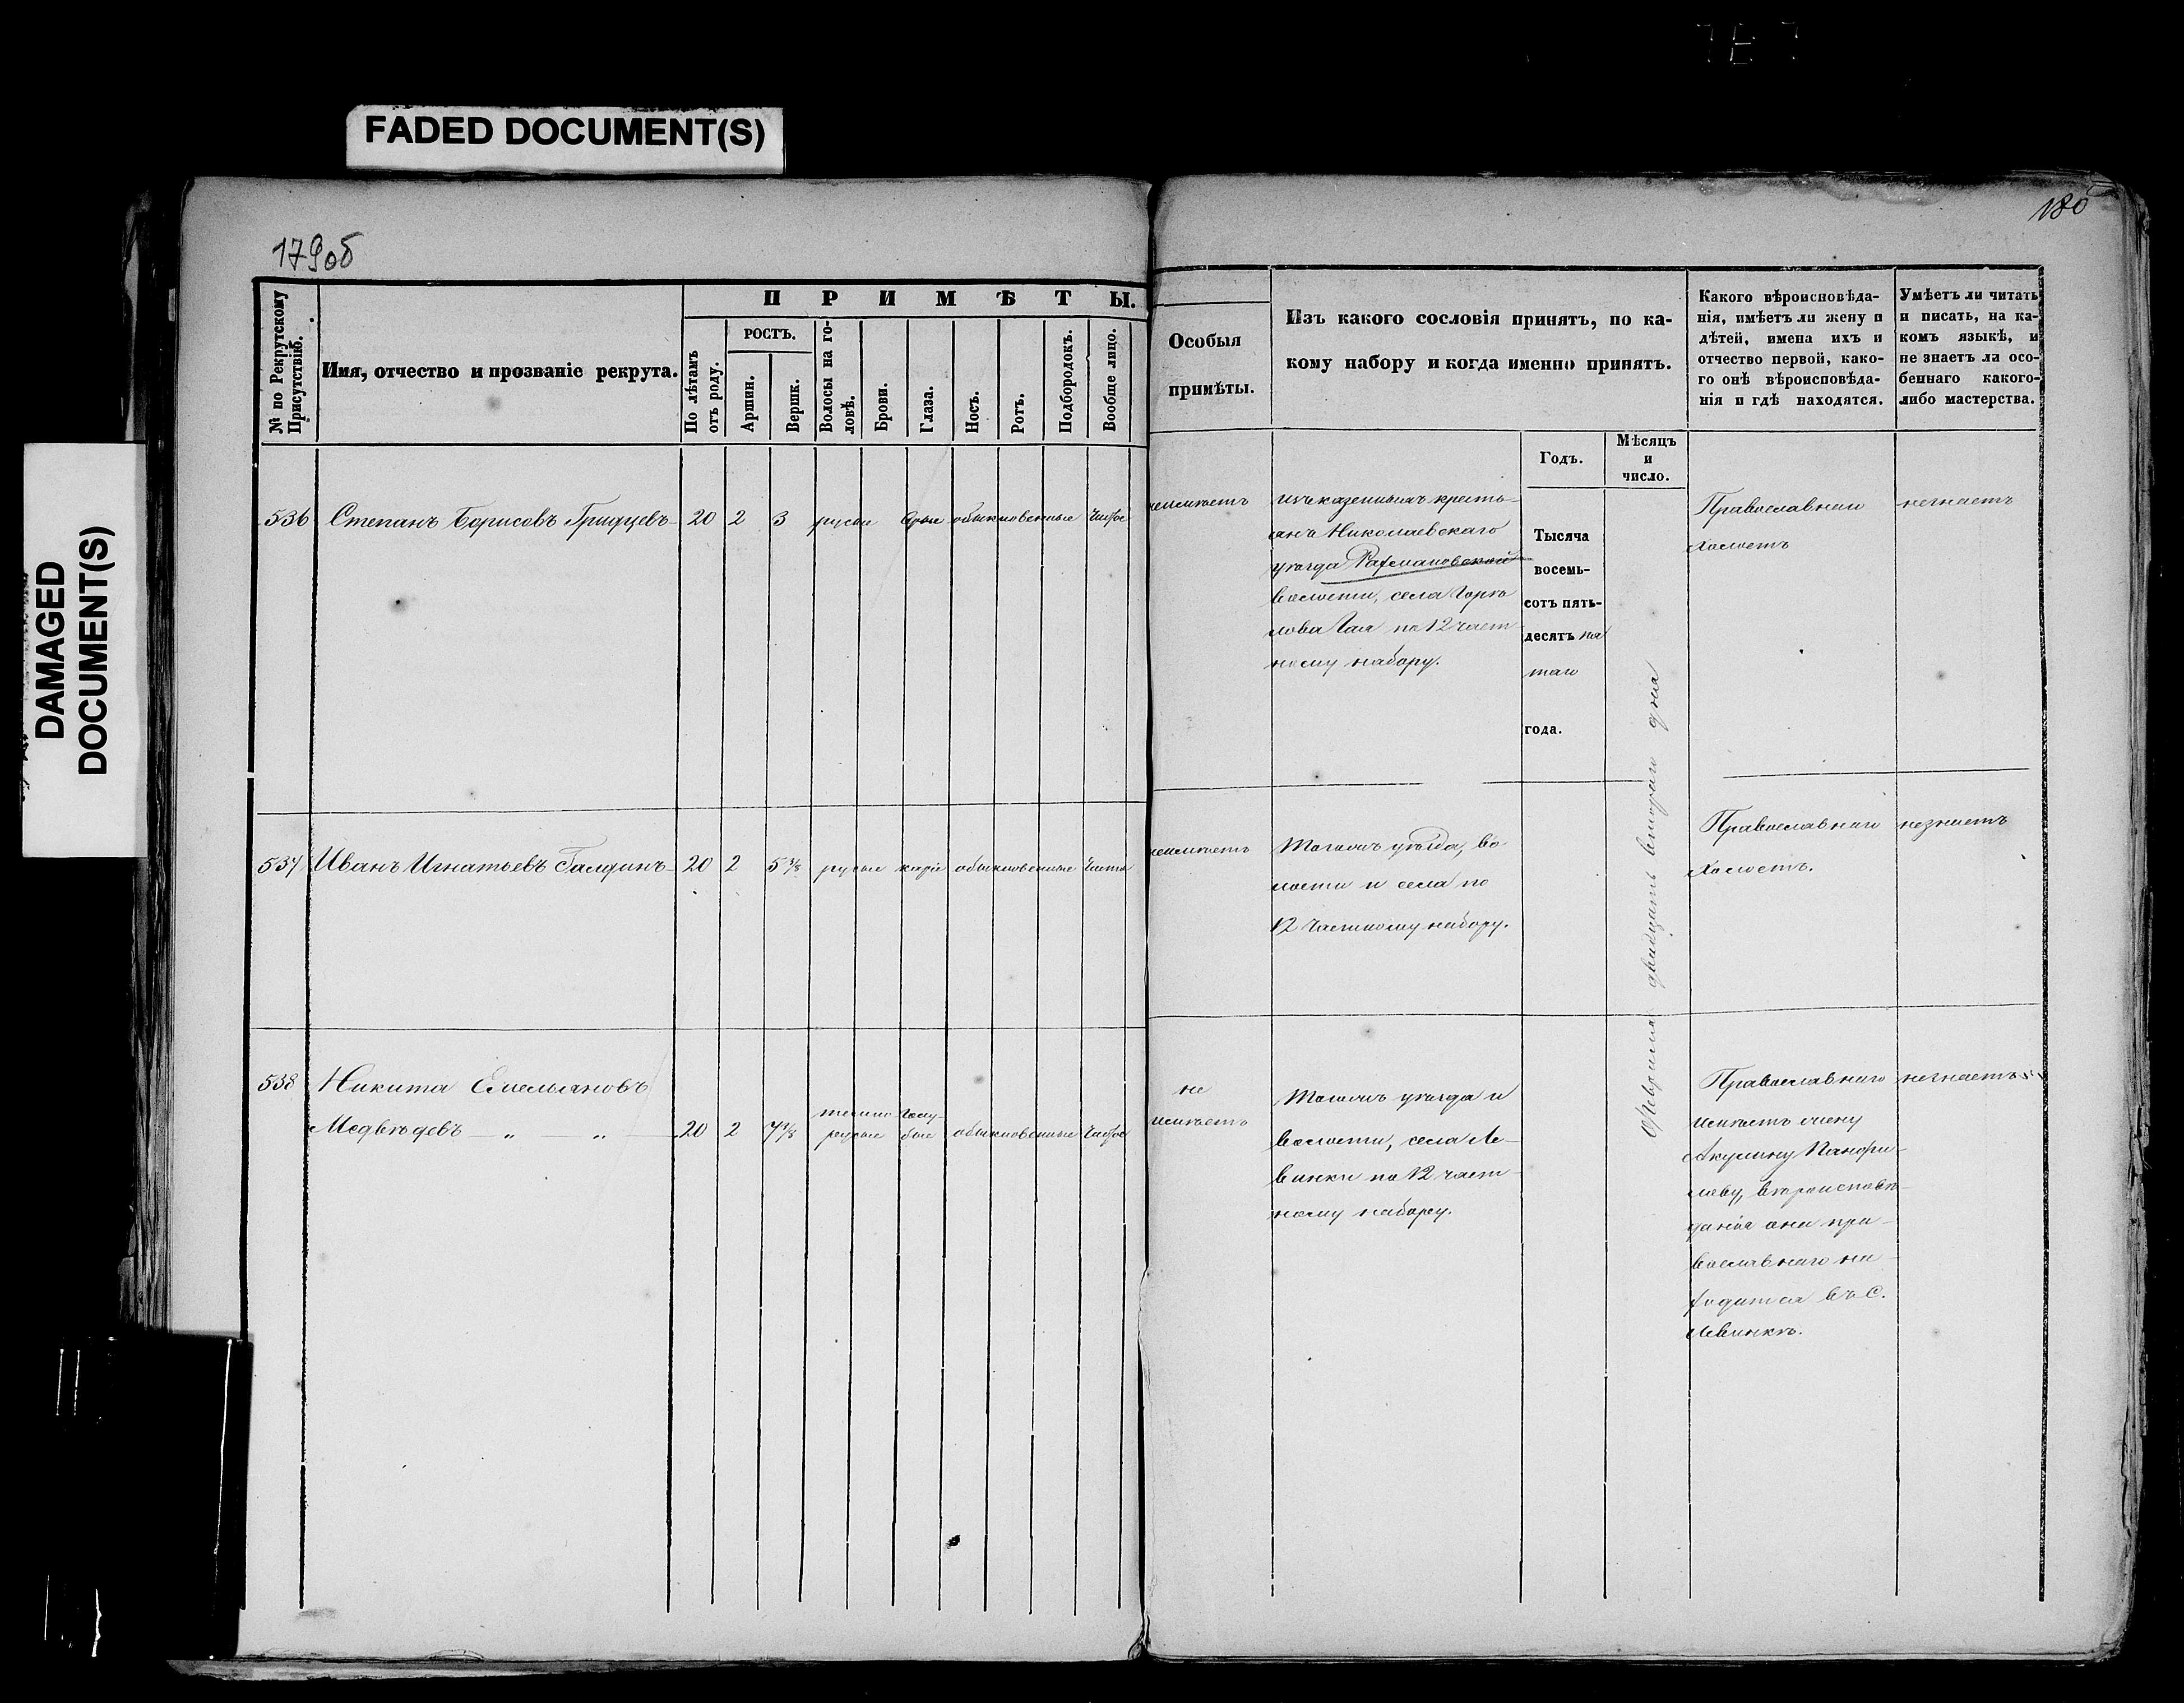 FADED DOCUMENT(S)
DAMAGED
DOCUMENT(S)
179об
180
№ по Рекрутскому Присутствію.
Имя, отчество и прозваніе рекрута.
ПРИМѢТЫ.
По лѣтамъ отъ роду.
РОСТЪ.
Аршин.
Вершк.
Волосы на головѣ.
Брови.
Глаза.
Носъ.
Ротъ.
Подбородокъ.
Вообще лицо.
Особыя
примѣты.
Изъ какого сословія принятъ, по ка-
кому набору и когда именно принятъ.
Годъ.
Мѣсяцъ
и
число.
Какого вѣроисповѣда-
нія, имѣетъ ли жену и
дѣтей, имена ихъ и
отчество первой, како-
го онѣ вѣроисповѣда-
нія и гдѣ находятся.
Умѣетъ ли читать
и писать, на ка-
комъ языкѣ, и
не знаетъ ли осо-
беннаго какого-
либо мастерства.
536 Степанъ Борисовъ Гридцевъ 20 2 3 русые сѣрые обыкновенные чистое
неимѣетъ
изъ казенныхъ кресть-
янъ Николаевскаго
уѣзда Рахмановской
волости, села
по 12 част
ному набору.
Тысяча
восемь-
сотъ пять-
десятъ пя
таго
года.
Февраля двадцать втораго дня
Православнаго
Холостъ
незнаетъ
537 Иванъ Игнатьевъ Галдинъ 20 2 5 3/8 русые каріе обыкновенные чисто
неимѣетъ
Тогожъ уѣзда, во-
лости и села по
12 частному набору.
Православнаго
Холостъ.
незнаетъ
538 Никита Емельяновъ
Медвѣдевъ — „ — „ — 20 2 7 1/8 темнорусые голу-бые обыкновенные чистое
не
имѣетъ
Тогожъ уѣзда и
волости, села Ле-
винки по 12 част-
ному набору.
Православнаго
имѣетъ жену
Акулину Панфи-
лову, вѣроисповѣ-
данія она пра-
вославнаго на-
ходится въ с.
Левинкѣ.
незнаетъ